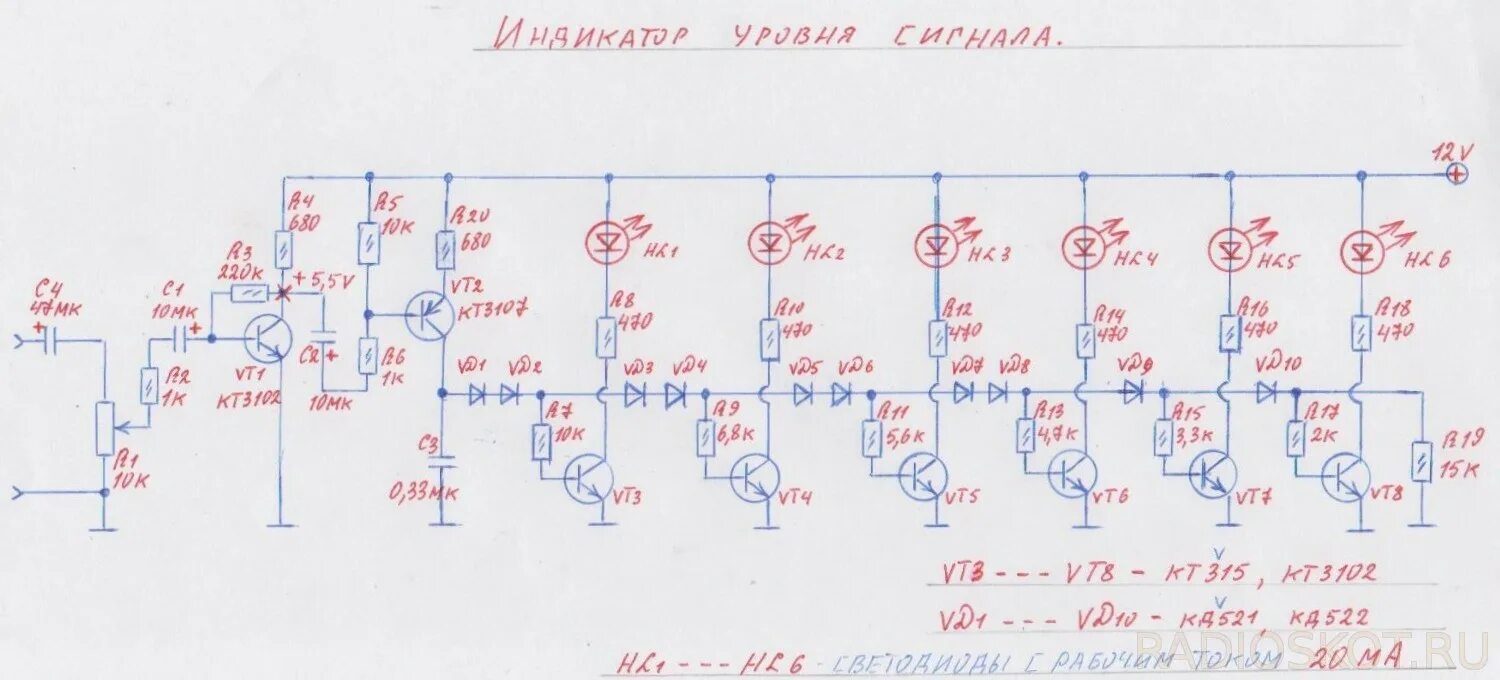 Индикатор уровня сигнала.
12V
R4
680
R5
10к
R20
680
R3
220к
+5,5V
C4
47мк
C1
10мк
VT2
КТ3107
HL1
HL2
HL3
HL4
HL5
HL6
R8
470
R10
470
R12
470
R14
470
R16
470
R18
470
R2
1к
VT1
КТ3102
C2
10мк
R6
1к
VD1
VD2
VD3
VD4
VD5
VD6
VD7
VD8
VD9
VD10
R1
10к
C3
0,33мк
R7
10к
R9
6,8к
R11
5,6к
R13
4,7к
R15
3,3к
R17
2к
R19
15к
VT3
VT4
VT5
VT6
VT7
VT8
VT3 --- VT8 - КТ315, КТ3102
VD1 --- VD10 - КД521, КД522
HL1 --- HL6 - светодиоды с рабочим током 20 мА
RADIOSKOT.RU